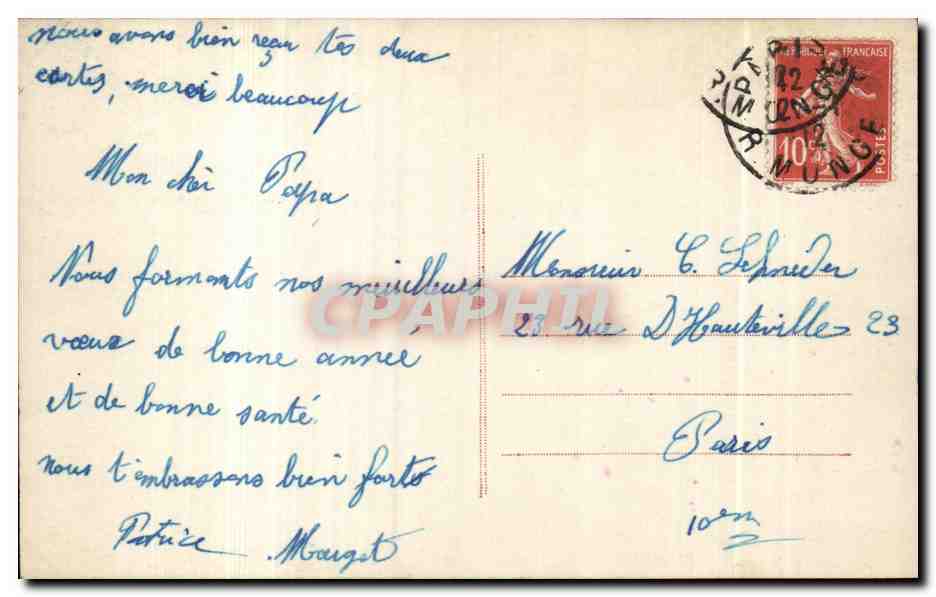 nous avons bien reçu tes deux
cartes, merci beaucoup
Mon chèr Papa
Nous formants nos meuilleurs
vœux de bonne année
et de bonne santé.
nous t'embrassons bien forts
Patrice Margot
REPUBLIQUE FRANÇAISE
10c
POSTES
PARIS
R MONGE
Monsieur C. Schneider
23 rue D'Hauteville 23
Paris
10em
CPAPHIL